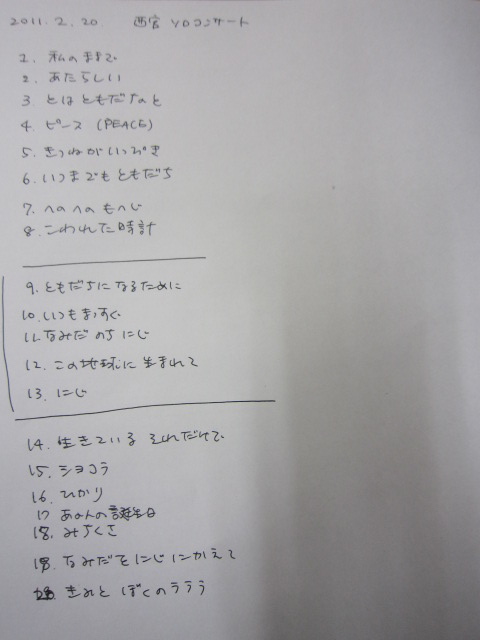 2011. 2. 20 西宮 YDコンサート
1. 私のままで
2. あたらしい
3 とは ともだちのと
4. ピース (PEACE)
5. きつねがいっぴき
6. いつまでも ともだち
7. へのへの もへじ
8. こわれた時計
9. ともだちに なるために
10. いつもまっすぐ
11. なみだ のち にじ
12. この地球に 生まれて
13. にじ
14. 生きている それだけで
15. ショコラ
16. ひかり
17 あの人の誕生日
18. みちくさ
19. なみだを にじ にかえて
20. きみと ぼくの ラララ